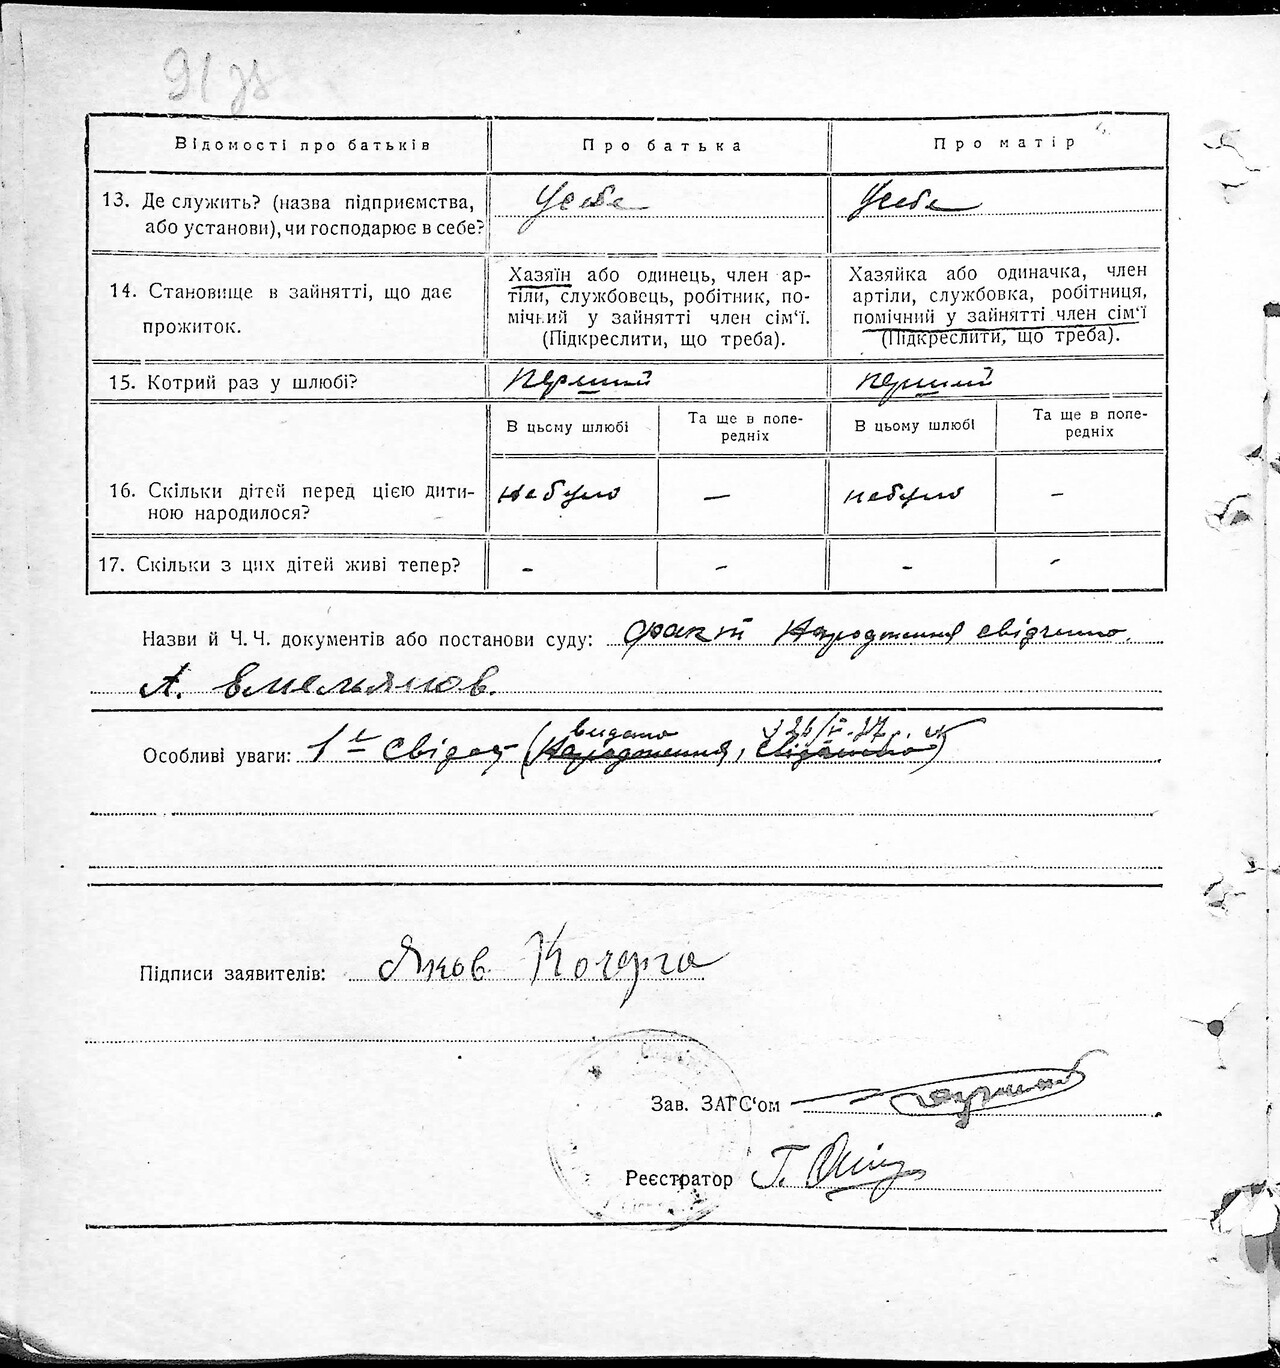 91 зв
Відомості про батьків
Про батька
Про матір
13. Де служить? (назва підприємства, або установи), чи господарює в себе?
У себе
У себе
14. Становище в зайнятті, що дає прожиток.
Хазяїн або одинець, член ар-
тіли, службовець, робітник, по-
мічний у зайнятті член сім‘ї.
(Підкреслити, що треба).
Хазяйка або одиначка, член
артіли, службовка, робітниця,
помічний у зайнятті член сім‘ї
(Підкреслити, що треба).
15. Котрий раз у шлюбі?
перший
перший
В цьому шлюбі
Та ще в попе-
редніх
В цьому шлюбі
Та ще в попе-
редніх
16. Скільки дітей перед цією дити-
ною народилося?
не було
—
не було
-
17. Скільки з цих дітей живі тепер?
-
-
-
-
Назви й Ч. Ч. документів або постанови суду: факт народження свідчено.
А. Емельянов.
видано
Особливі уваги: 1 (народження,
Підписи заявителів: Яков Кочерга
Зав. ЗАГС‘ом
Реєстратор Г.